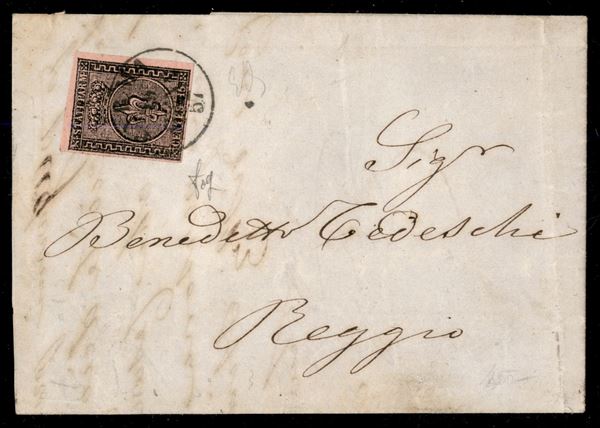 STATI PARM.
CENTES. 15
57
Sigr
Benedetto Tedeschi
Reggio